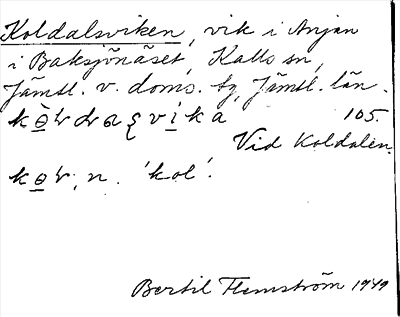 Koldalsviken, vik i Anjan
i Baksjönäset, Kalls sn,
Jämtl. v. doms. tg, Jämtl. län.
105.
Vid Koldalen.
n. 'kol'.
Bertil Flemström 1949